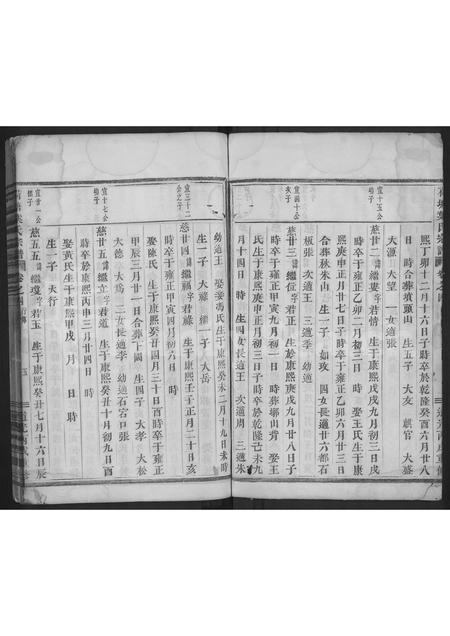 熙丁卯十二月十六日子時卒於乾隆癸酉六月廿八
日 時合葬墳頭山 生五子 大友 朝官 大盛
大源 大望 一女適張
宜十五公
幼子
慈廿二諱繼要字君情 生于康熙戊戌九月初三日戌
時卒于雍正乙卯二月初三日 時娶王氏生于康
熙庚申正月廿七日子時卒于雍正乙卯六月廿三日
合葬秋朱山 生一子 如攻 四女長適廿六都石
板張 次適王 三適季 幼適
宜四十公
次子
慈廿三諱繼位字 生於康熙庚戌九月廿八日子
時卒于雍正甲寅九月初一日 時葬塘山背 娶王
氏生于康熙庚申正月初三日子時卒於乾隆己未九
月十四日 時 生四女長適王 次適周 三適朱
幼適王 次娶馮氏生于康熙癸未二月十九日未時
生一子 大祿 繼一子 大岳
宜三十二
公之子
慈廿四諱繼福字君祿 生于康熙壬子正月二十日亥
時卒于雍正甲寅四月初六日 時
娶陳氏 生于康熙癸 廿四月三十日酉時卒于雍正
甲辰三月廿一日合葬上岡 生四子 大孝 大松
大德 大為 三女長適李 幼適石宮口張
宜十七公
幼子
慈廿五諱繼立字君道 生于康熙癸丑十月初九日酉
時卒於康熙丙申三月廿四日 時
娶黃氏生于康熙甲戌 月 日 時
生一子 大行
宜廿一公
慈五五諱繼瓊字君玉 生于康熙癸丑七月十六日辰